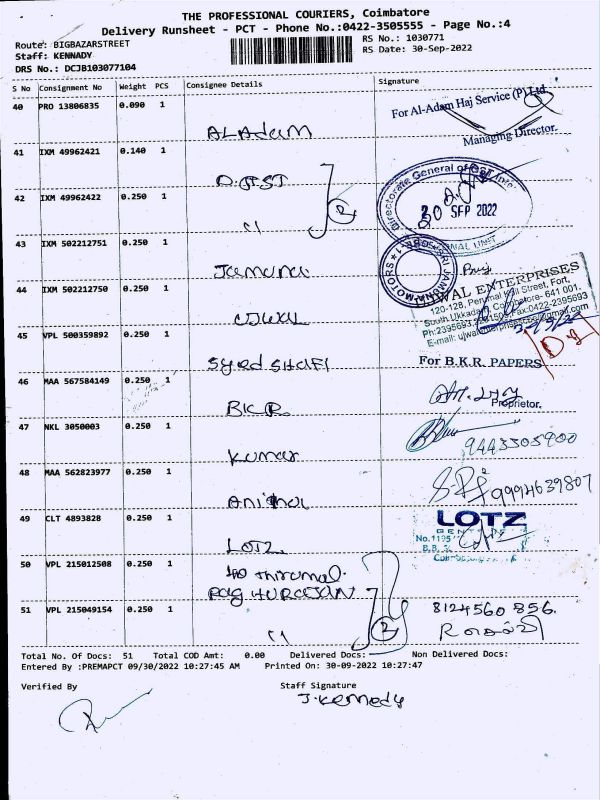 THE PROFESSIONAL COURIERS, Coimbatore
Delivery Runsheet - PCT - Phone No.:0422-3505555 - Page No.:4
Route: BIGBAZARSTREET
RS No.: 1030771
Staff: KENNADY
RS Date: 30-Sep-2022
DRS No.: DCJB103077104
S No Consignment No Weight PCS Consignee Details Signature
40 PRO 13806835 0.090 1
For Al-Adam Haj Service (P) Ltd.
AL Adam
Managing Director.
41 IXM 49962421 0.140 1
D.GST
Directorate General of
42 IXM 49962422 0.250 1
30 SEP 2022
"
2
43 IXM 502212751 0.250 1
Jamuna
MOTORS
44 IXM 502212750 0.250 1
UJWAL ENTERPRISES
120-128, Perumal Koil Street, Fort,
South Ukkadam, Coimbatore- 641 001.
Fax:0422-2395693
UJWAL
45 VPL 500359892 0.250 1
Syed SHAFI
For B.K.R. PAPERS
46 MAA 567584149 0.250 1
BKR
Proprietor.
47 NKL 3050003 0.250 1
9443505900
Kumar
48 MAA 562823977 0.250 1
9994639807
Animal
49 CLT 4893828 0.250 1
LOTZ
No.1195
LOTZ
50 VPL 215012508 0.250 1
51 VPL 215049154 0.250 1
8124560856.
"
2
Total No. Of Docs: 51 Total COD Amt: 0.00 Delivered Docs: Non Delivered Docs:
Entered By :PREMAPCT 09/30/2022 10:27:45 AM Printed On: 30-09-2022 10:27:47
Verified By Staff Signature
J. Kennedy